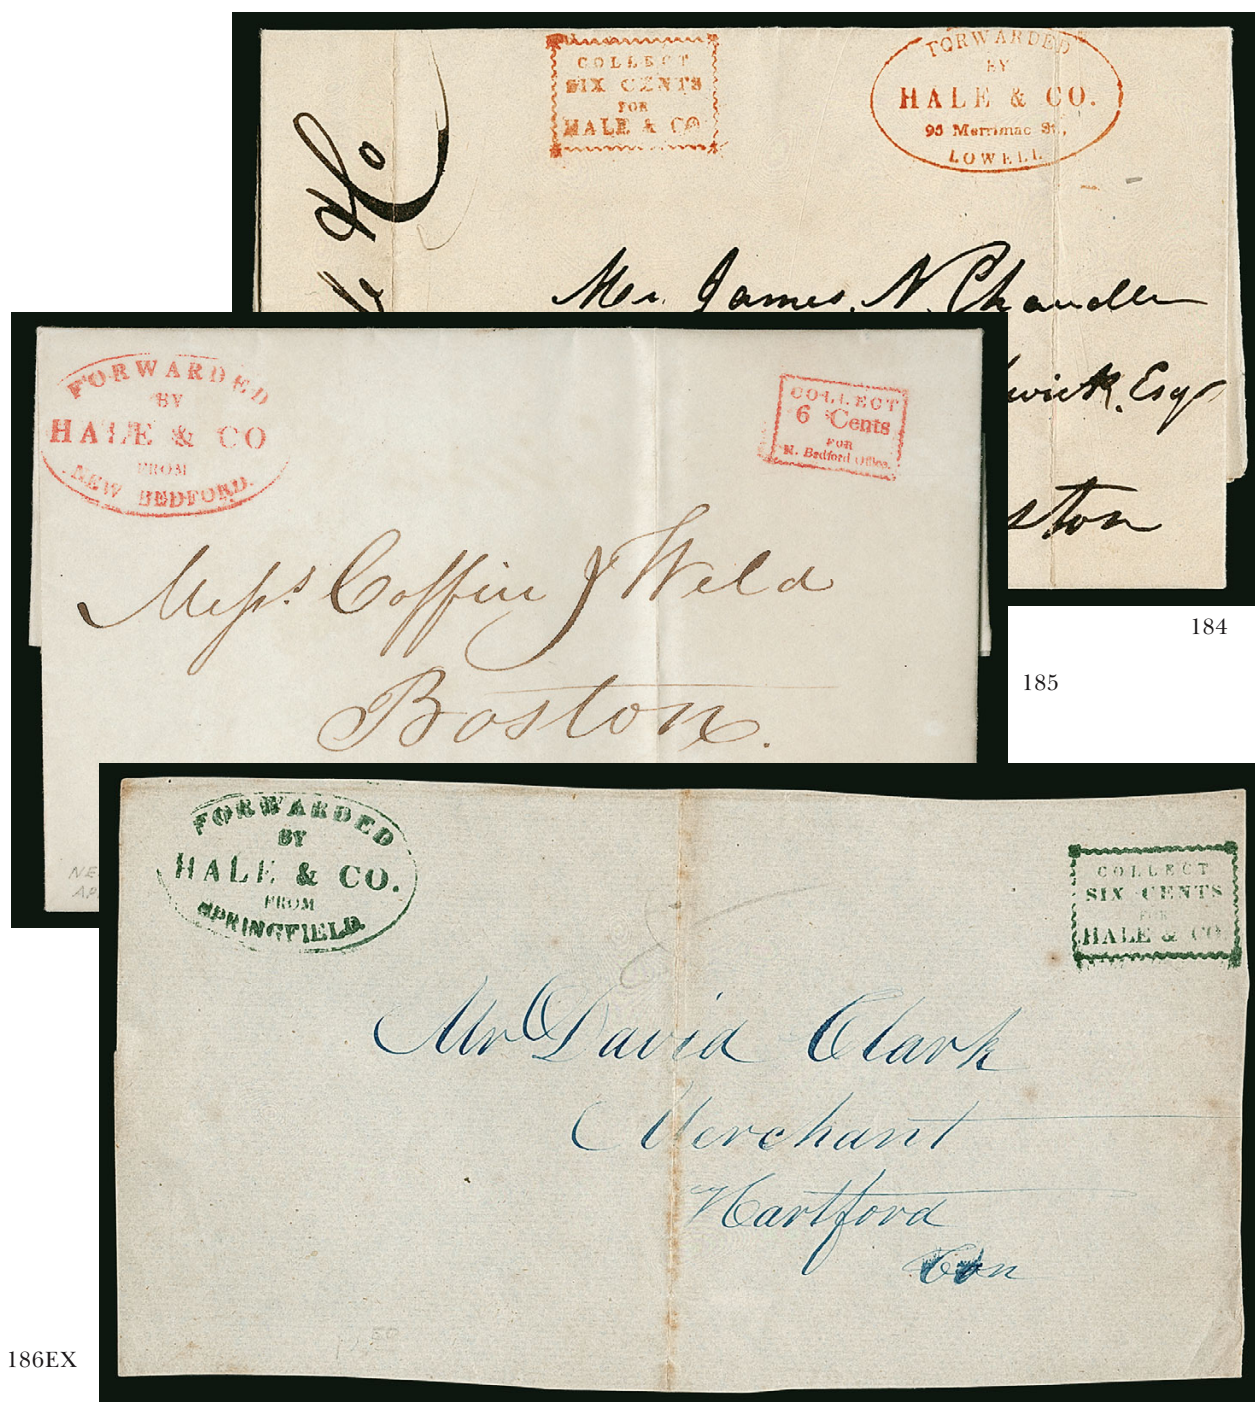 COLLECT
SIX CENTS
FOR
HALE & CO
FORWARDED
BY
HALE & CO.
95 Merrimac St.,
LOWELL
& Co
Mr. James. N. Chandler
wick, Esqr
ston
184
FORWARDED
BY
HALE & CO
FROM
NEW BEDFORD.
COLLECT
6 Cents
FOR
N. Bedford Office.
Messrs Coffin & Weld
Boston.
NE
AP
185
FORWARDED
BY
HALE & CO.
FROM
SPRINGFIELD.
COLLECT
SIX CENTS
FOR
HALE & CO
Mr David Clark
Merchant
Hartford
Con
186EX